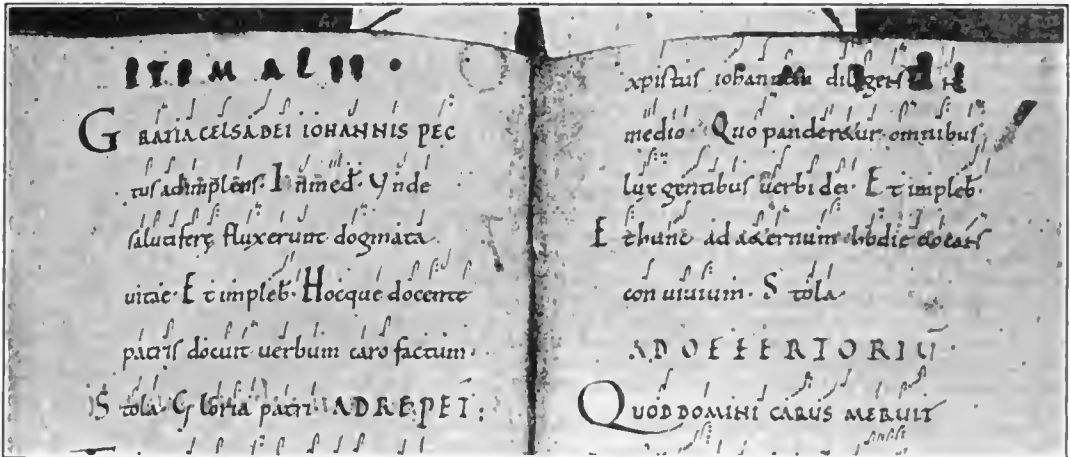 ITEM ALII.
GRATIA CELSA DEI IOHANNIS PEC
tus adimplens. In med. Vnde
salutiferę fluxerunt dogmata
uitae. Et impleƀ. Hocque docente
patris docuit uerbum caro factum.
Stola. Gloria patri. AD REPET:
xpistus iohannem diligens in
medio. Quo panderetur omnibus
lux gentibus uerbi dei. Et impleƀ.
Et hunc ad aeternum hodie
conuiuium. Stola
AD OFFERTORIŪ.
QUOD DOMINI CARUS MERUIT